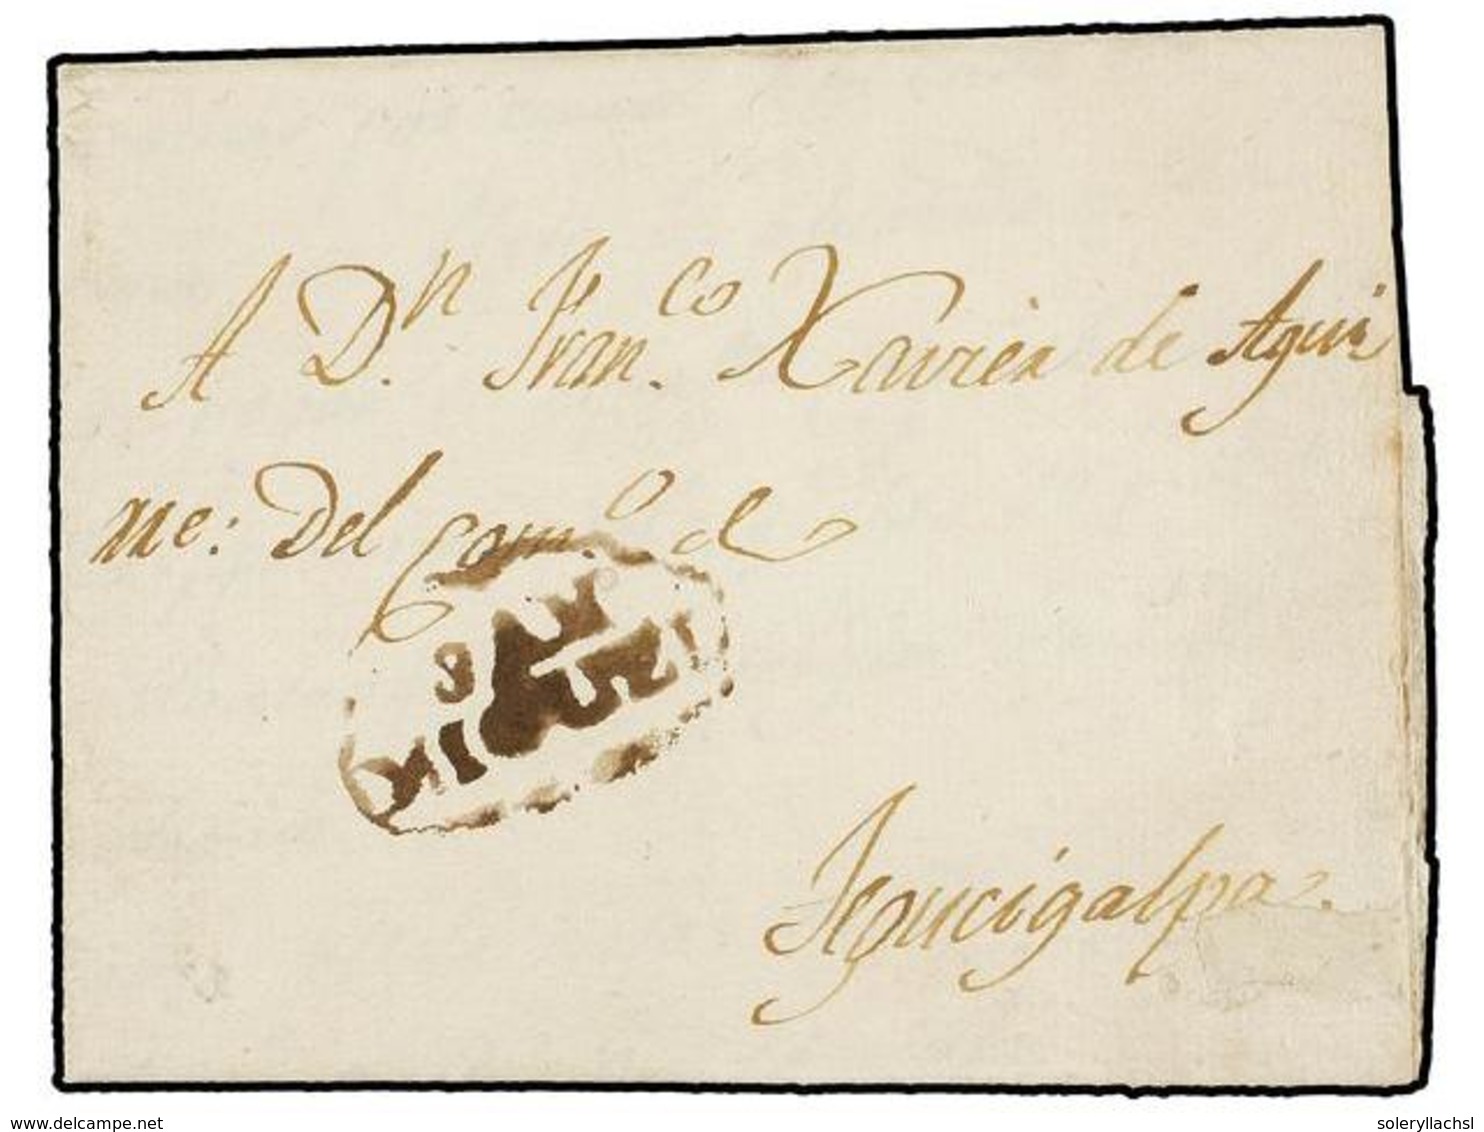 A Dn. Franco. Xavier de Agui
me: Del Como. de
SAN
MIGUEL
Tegucigalpa.
delcampe.net
soleryllachsl